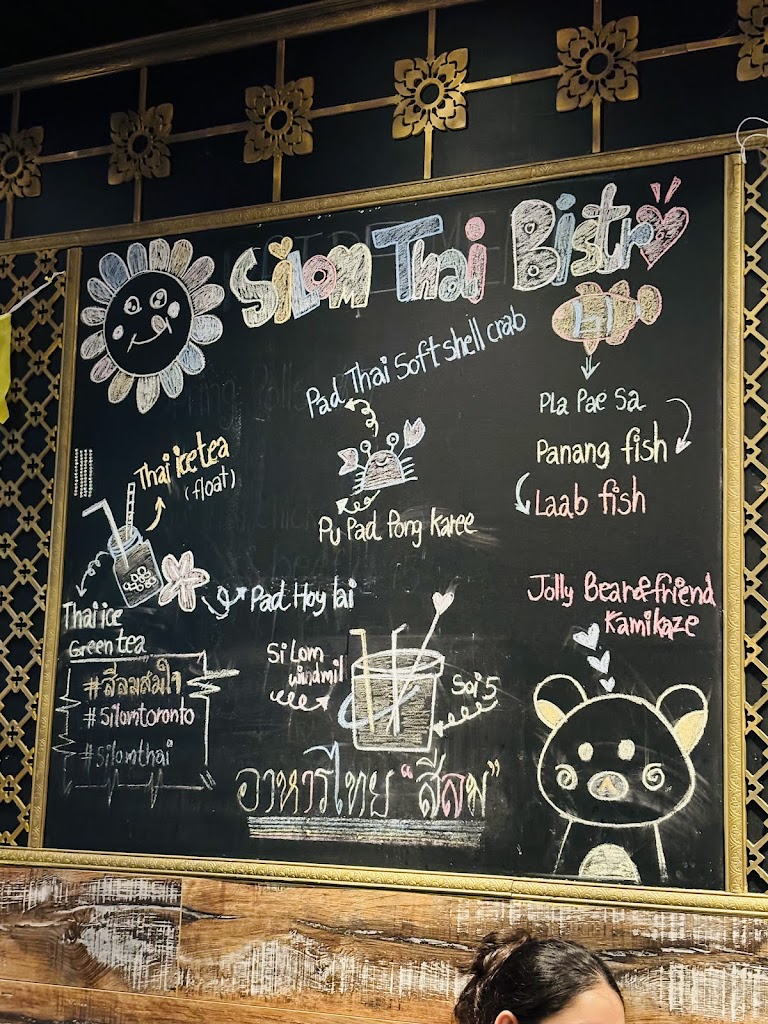 Silom Thai Bistro
Pad Thai Soft shell crab
Pla Pae Sa
Panang fish
Laab fish
Thai ice tea
(float)
Pu Pad Pong Karee
Pad Hoy lai
Thai ice
Green tea
Jolly Bear & friend
Kamikaze
Si Lom
windmil
Soi 5
#สีลมสมใจ
#Silomtoronto
#Silomthai
อาหารไทย "สีลม"